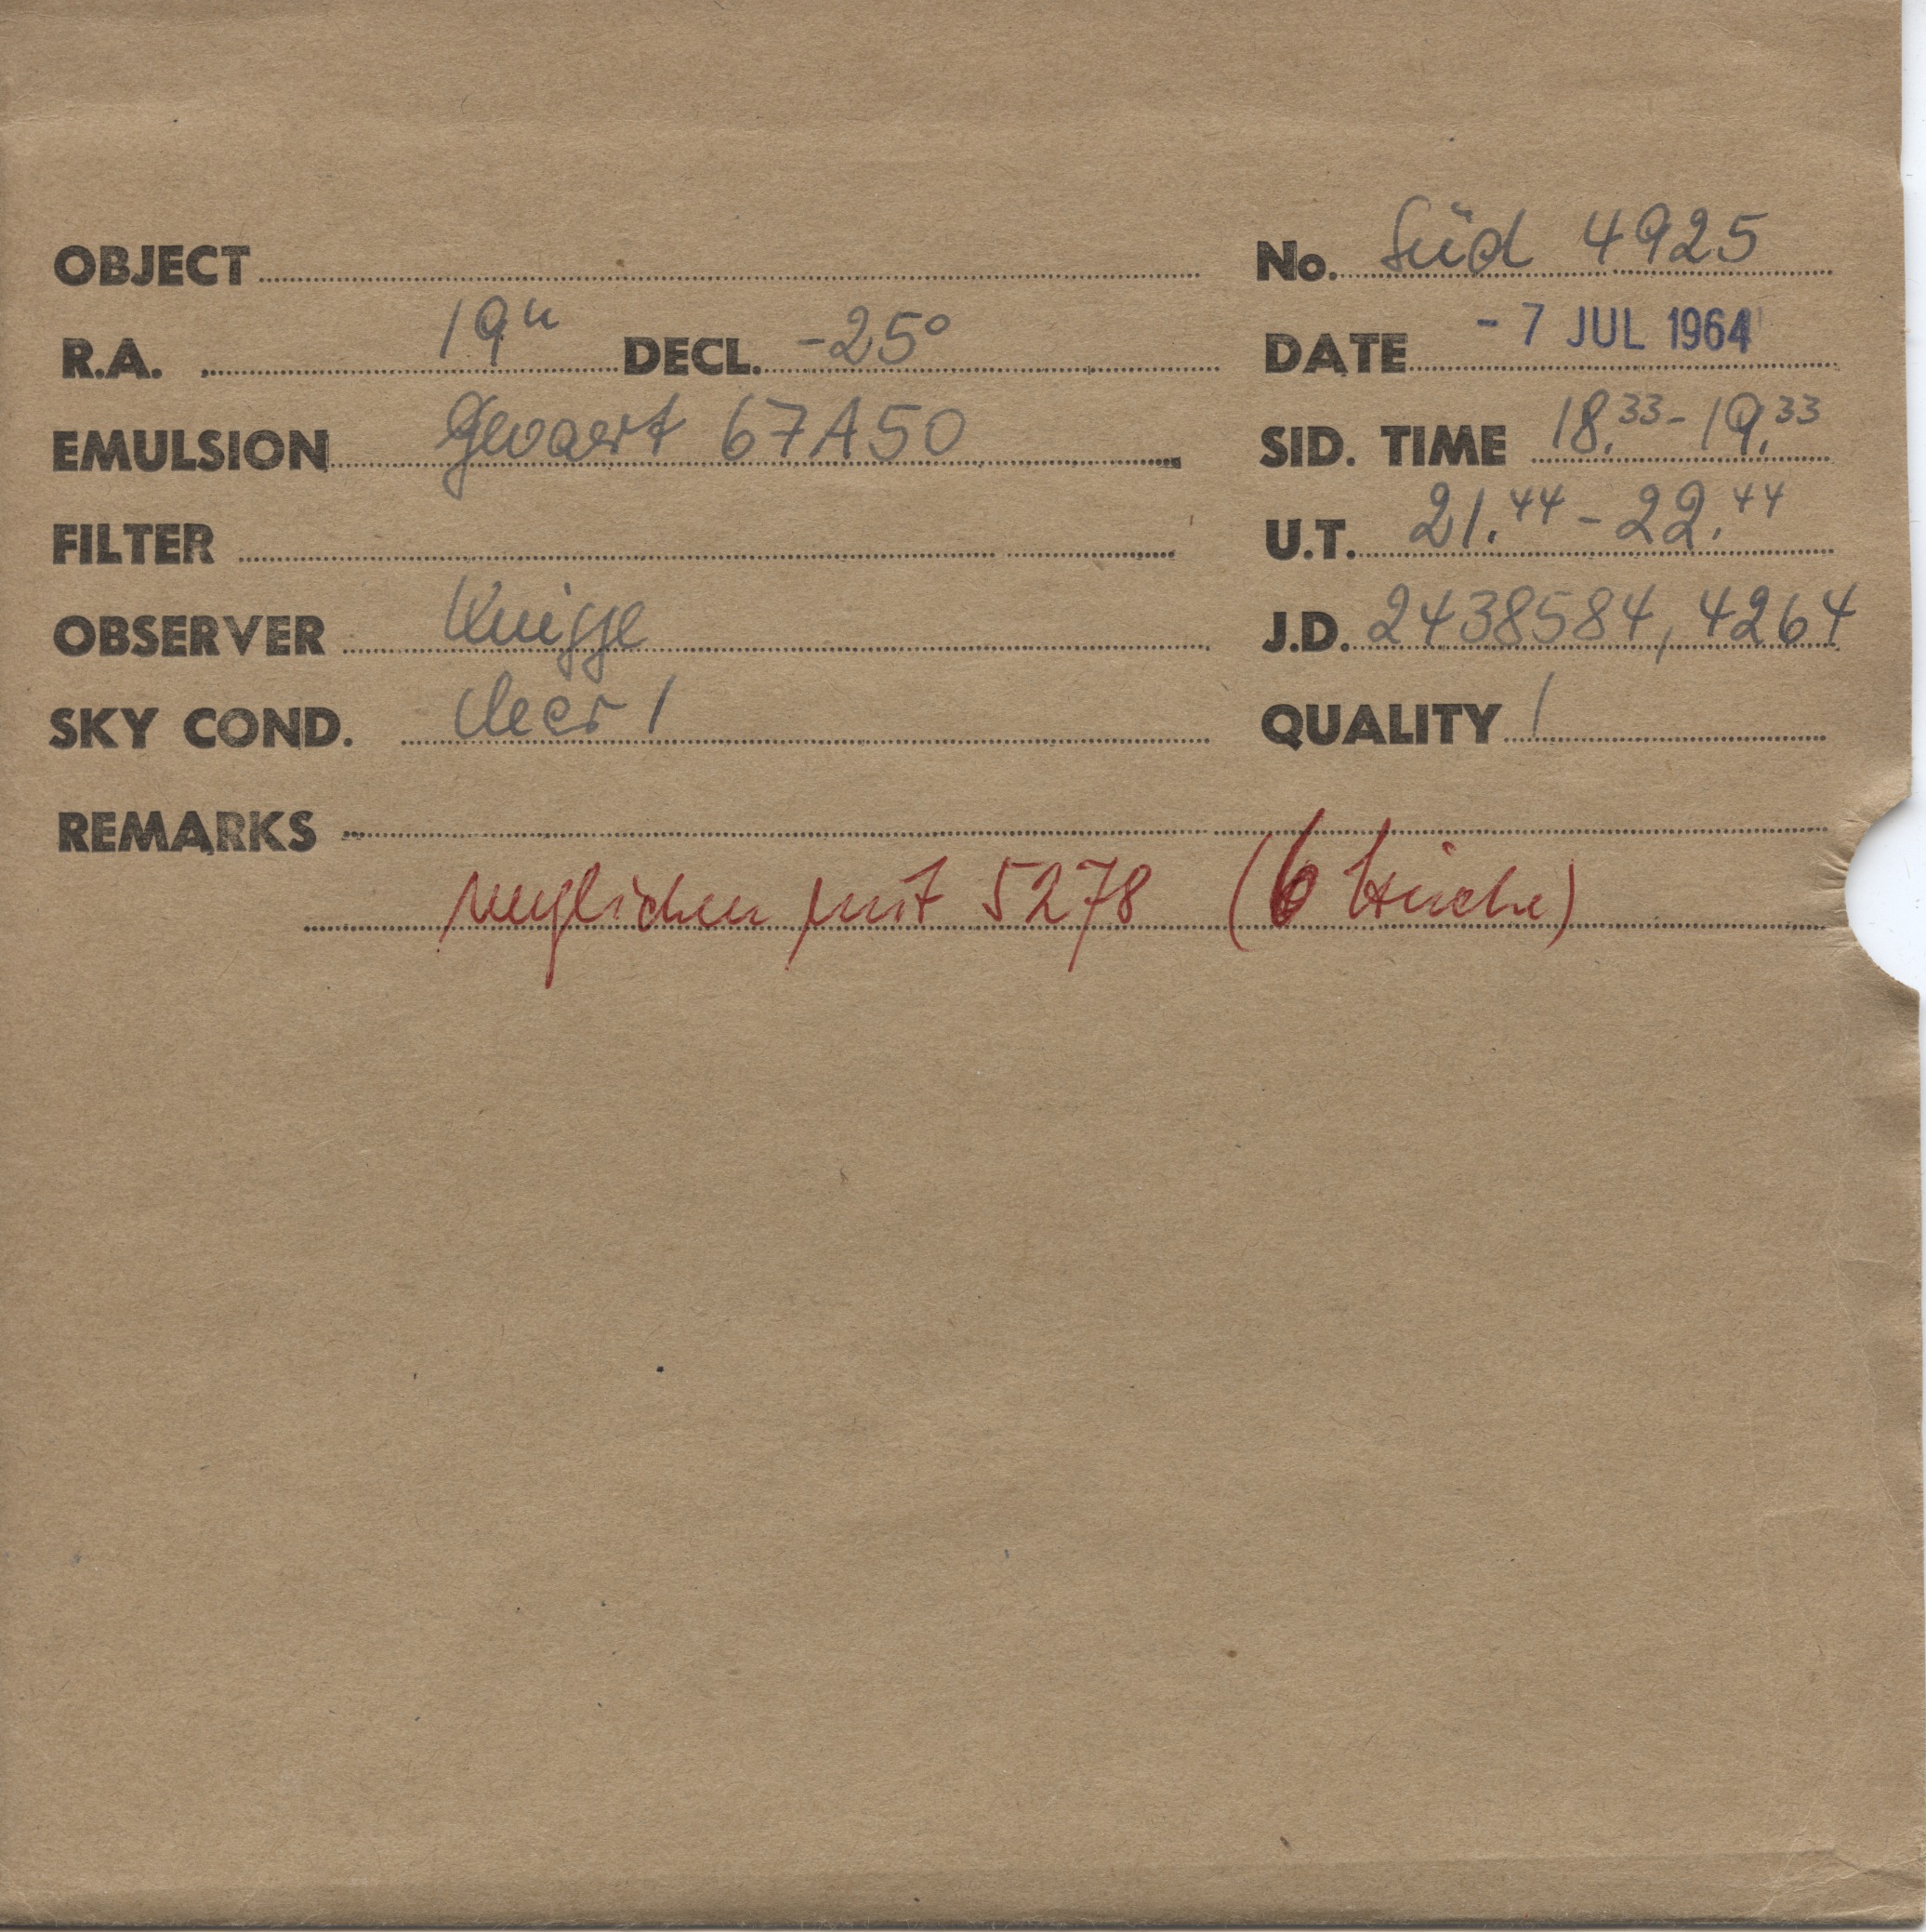 OBJECT No. Süd 4925
R.A. 19h DECL. -25° DATE - 7 JUL 1964
EMULSION Gevaert 67A50 SID. TIME 18.33 - 19.33
FILTER U.T. 21.44 - 22.44
OBSERVER Knigge J.D. 2438584,4264
SKY COND. clear 1 QUALITY 1
REMARKS
verglichen mit 5278 (6